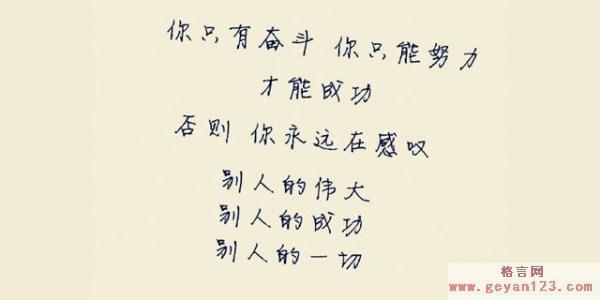 你只有奋斗 你只能努力
才能成功
否则 你永远在感叹
别人的伟大
别人的成功
别人的一切
格言网
www.geyan123.com